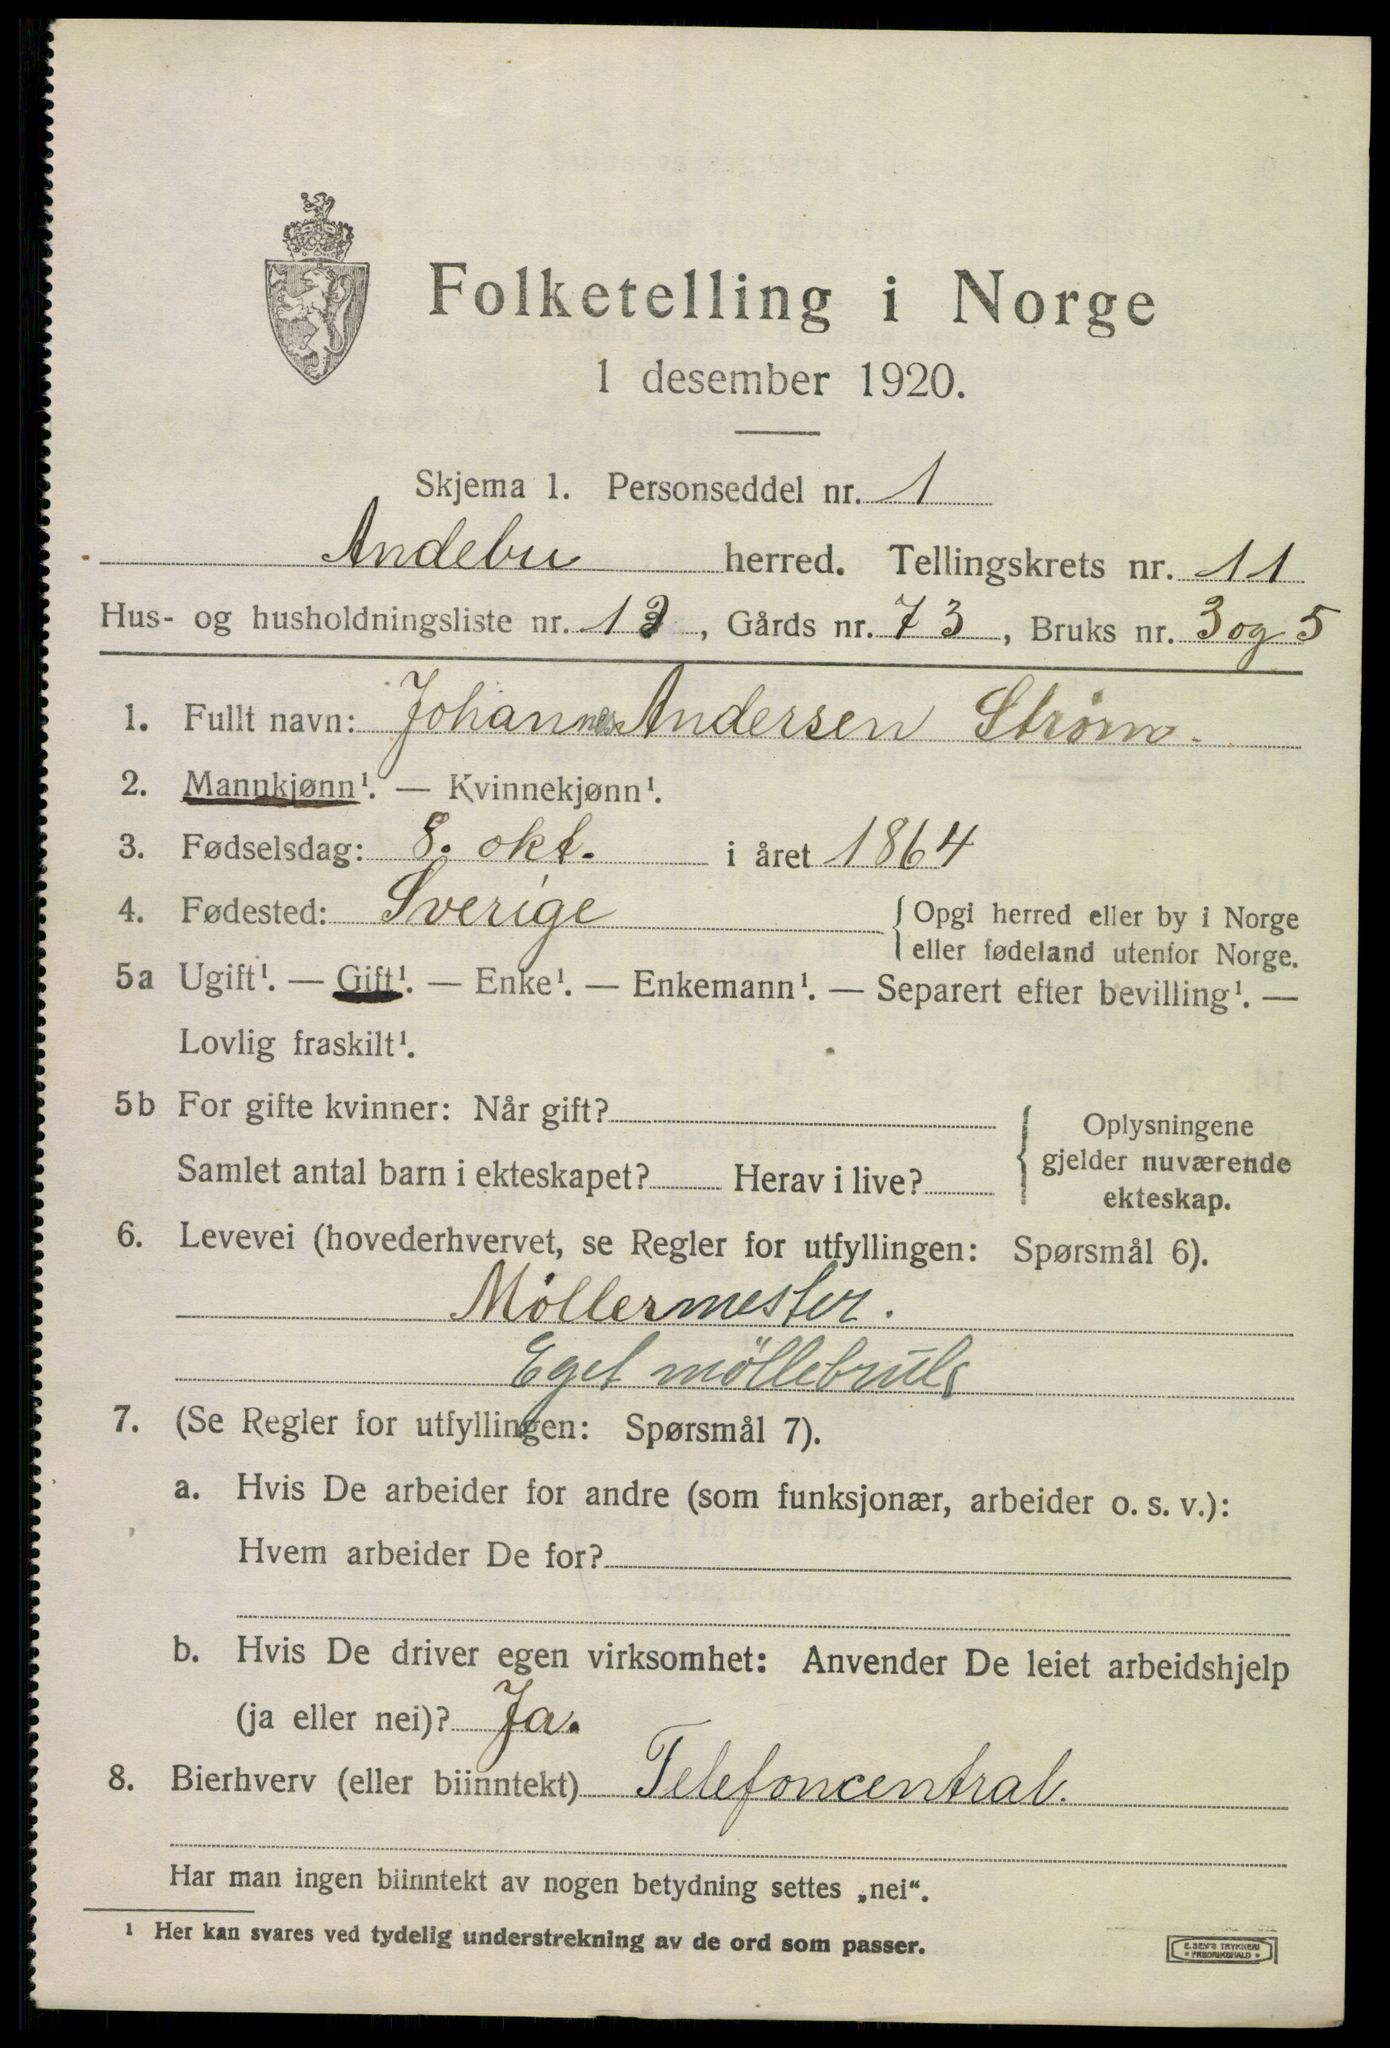 Folketelling i Norge
1 desember 1920.
Skjema 1. Personseddel nr. 1
Andebu herred. Tellingskrets nr. 11
Hus- og husholdningsliste nr. 13, Gårds nr. 73, Bruks nr. 3 og 5
1. Fullt navn: Johannes Andersen Strøm.
2. Mannkjønn¹. — Kvinnekjønn¹.
3. Fødselsdag: 8. okt. i året 1864
4. Fødested: Sverige { Opgi herred eller by i Norge
eller fødeland utenfor Norge.
5a Ugift¹. — Gift¹. — Enke¹. — Enkemann¹. — Separert efter bevilling¹. —
Lovlig fraskilt¹.
5b For gifte kvinner: Når gift?
Samlet antal barn i ekteskapet? Herav i live?
{ Oplysningene
gjelder nuværende
ekteskap.
6. Levevei (hovederhvervet, se Regler for utfyllingen: Spørsmål 6).
Møllermester.
Eget möllebruk
7. (Se Regler for utfyllingen: Spørsmål 7).
a. Hvis De arbeider for andre (som funksjonær, arbeider o. s. v.):
Hvem arbeider De for?
b. Hvis De driver egen virksomhet: Anvender De leiet arbeidshjelp
(ja eller nei)? Ja.
8. Bierhverv (eller biinntekt) Telefoncentral.
Har man ingen biinntekt av nogen betydning settes „nei“.
¹ Her kan svares ved tydelig understrekning av de ord som passer.
E. SEM'S TRYKKERI
FREDRIKSHALD